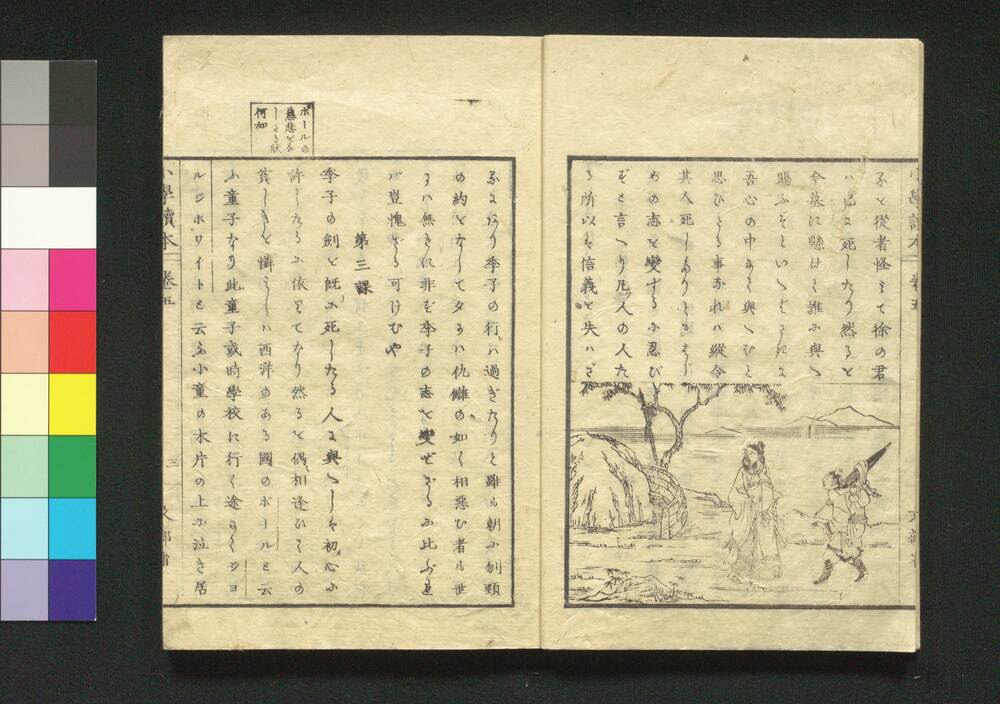 ふを從者怪ミて徐の君
ハ已に死したり然ると
今墓に懸けて誰に與へ
賜ふぞといへばされば
吾心の中にて與へむと
思ひたる事なれバ縱令
其人死したりともはじ
めの志を變するに忍び
ずと言へり凡人の人た
る所以は信義を失ハざ
るにあり季子の行ハ過ぎたりと雖も朝に刎頸
の約をなしてタにハ仇讎の如く相惡む者も世
にハ無きに非ず季子の志を變ぜざるに比ぶれ
バ豈愧ざる可けむや
第三課
季子の劍を既に死したる人に與へしは初心に
許したるに依りてなり然ると偶相逢ひて人の
貧しきを憐ミしハ西洋のある國のポールと云
ふ童子なり此童子或時學校に行く途にてジヨ
ルジホワイトと云ふ小童の木片の上に泣き居
ポールの
慈悲を
何如
小學讀本 卷五
三
文部省